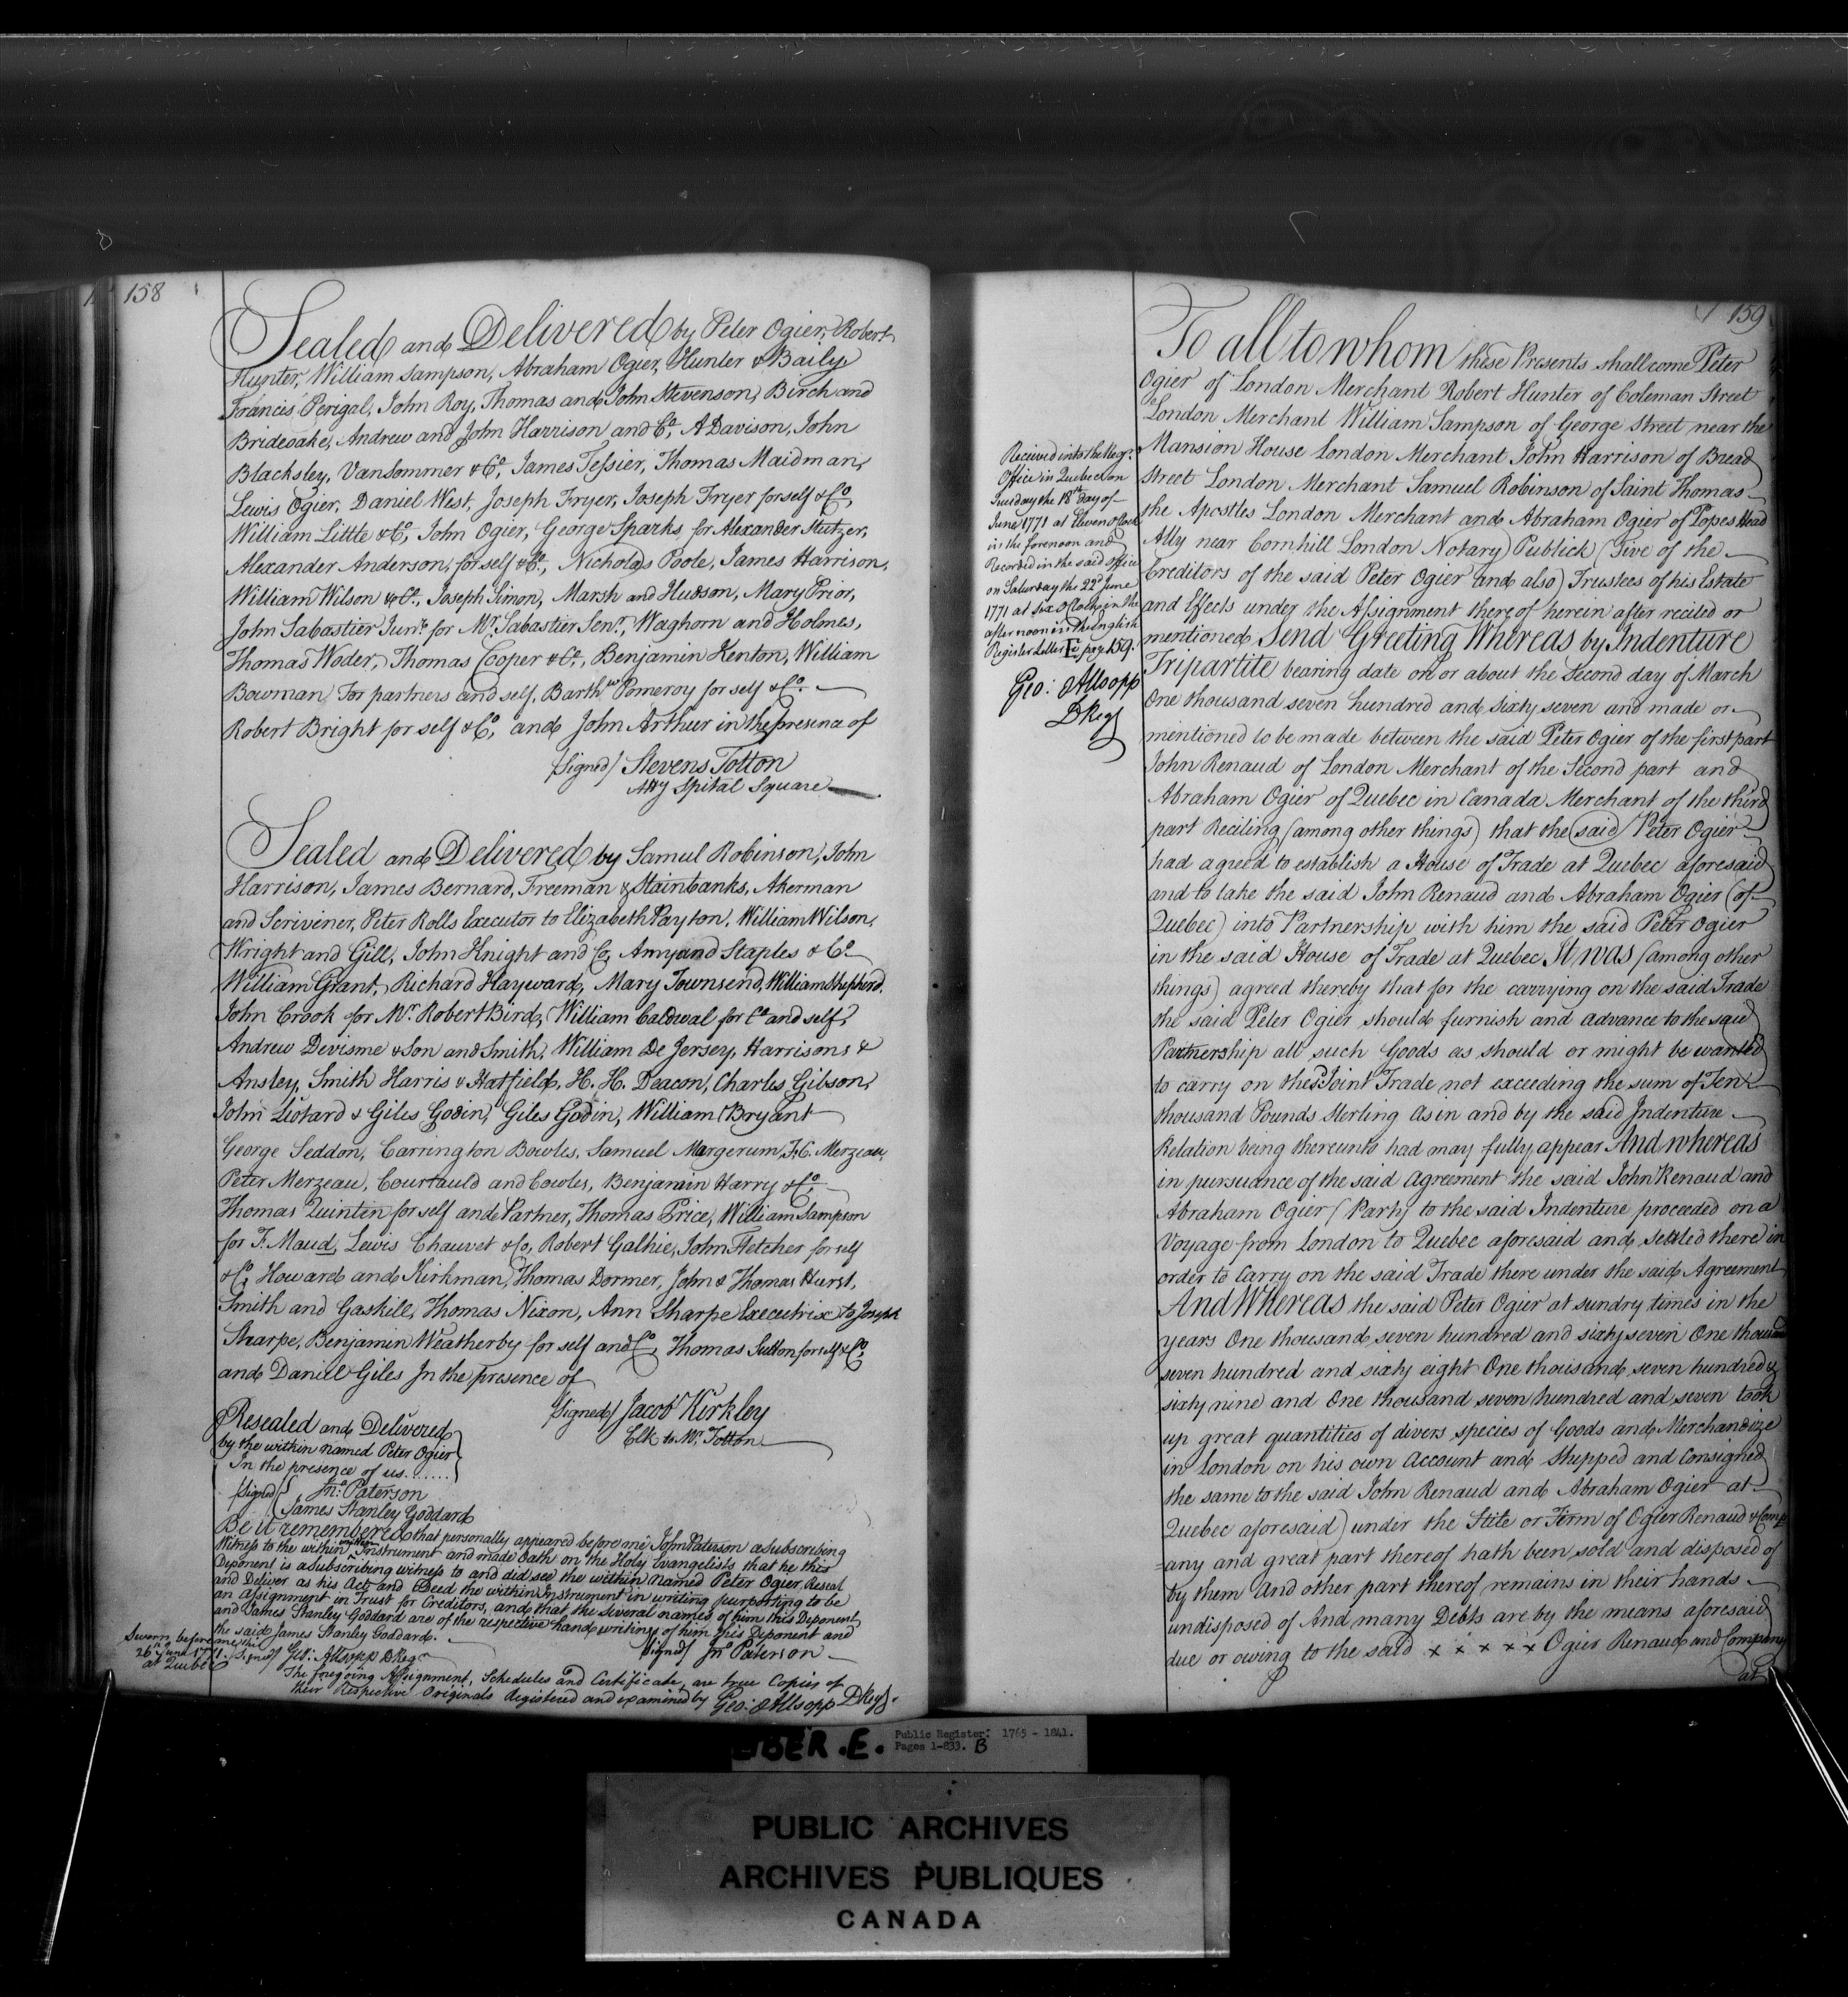 158
Sealed and Delivered by Peter Ogier, Robert
Hunter, William Sampson, Abraham Ogier, Hunter & Baily,
Francis Perigal, John Roy, Thomas and John Stevenson, Birch and
Brideoake, Andrew and John Harrison and Co., A Davison, John
Blacksley, VanSommer & Co, James Tessier, Thomas Maidman,
Lewis Ogier, Daniel West, Joseph Fryer, Joseph Fryer for self & Co,
William Little & Co, John Ogier, George Sparks for Alexander Stutzer,
Alexander Anderson, for self & Co., Nicholas Poole, James Harrison,
William Wilson & Co., Joseph Simon, Marsh and Hudson, Mary Prior,
John Sabastier Junr. for Mr. Sabastier Senr., Waghorn and Holmes,
Thomas Woder, Thomas Cooper & Co., Benjamin Kenton, William
Bowman For partners and self, Barthw Pomeroy for self & Co.
Robert Bright for self & Co, and John Arthur in the presence of
(Signed) Stevens Totton
Atty Spital Square
Sealed and Delivered by Samuel Robinson, John
Harrison, James Bernard, Freeman & Stainbanks, Akerman
and Scrivener, Peter Rolls Executor to Elizabeth Payton, William Wilson,
Wright and Gill, John Knight and Co, Amyand Staples & Co
William Grant, Richard Hayward, Mary Townsend, William Shepherd,
John Crook for Mr. Robert Bird, William Caldwal for Co and self,
Andrew Devisme & Son and Smith, William De Jersey, Harrisons &
Ansley, Smith Harris & Hatfield, H. H. Deacon, Charles Gibson,
John Liotard & Giles Godin, Giles Godin, William Bryant
George Seddon, Carrington Bowles, Samuel Margerum, F. C. Merzeau,
Peter Merzeau, Courtauld and Cowles, Benjamin Harry & Co
Thomas Quintin for self and Partner, Thomas Price, William Sampson
for F. Maud, Lewis Chauvet & Co, Robert Galhie, John Fletcher for self
& Co, Howard and Kirkman, Thomas Dormer, John & Thomas Hurst,
Smith and Gaskill, Thomas Nixon, Ann Sharpe Executrix to Joseph
Sharpe, Benjamin Weatherby for self and Co, Thomas Sutton for self & Co,
and Daniel Giles In the presence of
(Signed) Jacob Kirkley
Clk to Mr. Totton
Resealed and Delivered
by the within named Peter Ogier
In the presence of us.......
(Signed) Jno: Paterson
James Stanley Goddard
Be it remembered that personally appeared before me John Paterson a subscribing
Witness to the within written Instrument and made Oath on the Holy Evangelists that he this
Deponent is a subscribing witness to and did see the within named Peter Ogier Reseal
and Deliver as his Act and Deed the within Instrument in writing purporting to be
an Assignment in Trust for Creditors, and that the several names of him this Deponent
and James Stanley Goddard are of the respective hand writings of him this Deponent and
the said James Stanley Goddard.
Signed Jno Paterson
Sworn before me this
26th June 1771. Signed Geo: Allsopp DReg.
at Quebec
The foregoing Assignment, Schedules and Certificate, are true Copies of
their Respective Originals Registered and examined by Geo: Allsopp DReg.
159
Received into the Regr.
Office in Quebec on
Tuesday the 18th day of
June 1771 at Eleven o'Clock
in the forenoon and
Recorded in the said office
on Saturday the 22d June
1771 at Six o Clock in the
afternoon in the English
Register Letter E page 159.
Geo: Allsopp
DReg
To all to whom these Presents shall come Peter
Ogier of London Merchant Robert Hunter of Coleman Street
London Merchant William Sampson of George Street near the
Mansion House London Merchant John Harrison of Bread
Street London Merchant Samuel Robinson of Saint Thomas
the Apostles London Merchant and Abraham Ogier of Popes Head
Ally near Cornhill London Notary Publick (Five of the
Creditors of the said Peter Ogier and also) Trustees of his Estate
and Effects under the Assignment thereof herein after recited or
mentioned Send Greeting Whereas by Indenture
Tripartite bearing date on or about the Second day of March
One thousand seven hundred and Sixty seven and made or
mentioned to be made between the said Peter Ogier of the first part
John Renaud of London Merchant of the Second part and
Abraham Ogier of Quebec in Canada Merchant of the third
part Reciting (among other things) that the said Peter Ogier
had agreed to establish a House of Trade at Quebec aforesaid
and to take the said John Renaud and Abraham Ogier (of
Quebec) into Partnership with him the said Peter Ogier
in the said House of Trade at Quebec It was (among other
things) agreed thereby that for the carrying on the said Trade
the said Peter Ogier should furnish and advance to the said
Partnership all such Goods as should or might be wanted
to carry on the sd Joint Trade not exceeding the sum of Ten
thousand Pounds Sterling as in and by the said Indenture
Relation being thereunto had may fully appear And whereas
in pursuance of the said Agreement the said John Renaud and
Abraham Ogier (Party to the said Indenture proceeded on a
Voyage from London to Quebec aforesaid and settled there in
order to Carry on the said Trade there under the said Agreement
And Whereas the said Peter Ogier at sundry times in the
years One thousand seven hundred and sixty seven One thousand
seven hundred and sixty eight One thousand seven hundred &
sixty nine and One thousand seven hundred and seven took
up great quantities of divers species of Goods and Merchandize
in London on his own Account and Shipped and Consigned
the same to the said John Renaud and Abraham Ogier at
Quebec aforesaid) under the Stile or Firm of Ogier Renaud & Comp
=any and great part thereof hath been sold and disposed of
by them And other part thereof remains in their hands
undisposed of And many Debts are by the means aforesaid
due or owing to the said x x x x x Ogier Renaud and Company
at
BER .E.
Public Register: 1765 - 1841.
Pages 1-833. B
PUBLIC ARCHIVES
ARCHIVES PUBLIQUES
CANADA